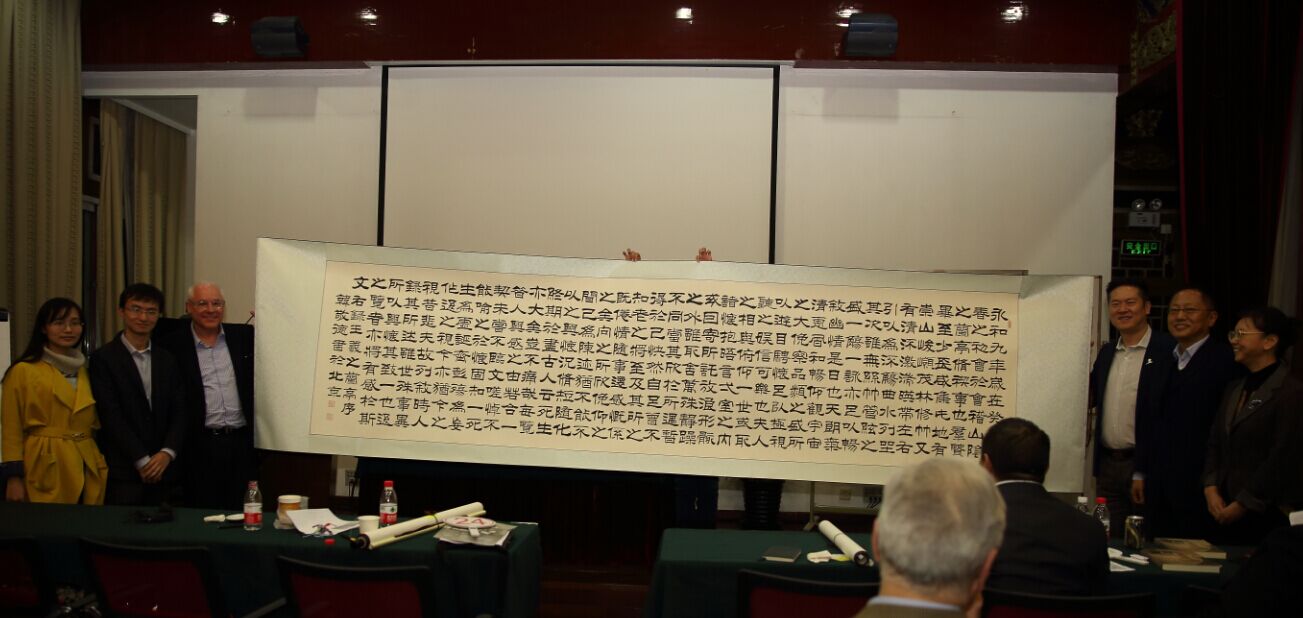 永和九年歲在癸丑暮
春之初會於會稽山陰
之蘭亭脩禊事也羣賢
畢至少長咸集此地有
崇山峻領茂林脩竹又
有清流激湍暎帶左右
引以為流觴曲水列坐
其次雖無絲竹管弦之
盛一觴一詠亦足以暢
敘幽情是日也天朗氣
清惠風和暢仰觀宇宙
之大俯察品類之盛所
以遊目騁懷足以極視
聽之娛信可樂也夫人
之相與俯仰一世或取
諸懷抱晤言一室之內
或因寄所託放浪形骸
之外雖趣舍萬殊靜躁
不同當其欣於所遇暫
得於己快然自足曾不
知老之將至及其所之
既倦情隨事遷感慨係
之矣向之所欣俛仰之
間已為陳迹猶不能不
以之興懷況脩短隨化
終期於盡古人云死生
亦大矣豈不痛哉每覽
昔人興感之由若合一
契未嘗不臨文嗟悼不
能喻之於懷固知一死
生為虛誕齊彭殤為妄
作後之視今亦猶今之
視昔悲夫故列敘時人
錄其所述雖世殊事異
所以興懷其致一也後
之覽者亦將有感於斯
文 右錄王羲之蘭亭序
韓敬德書於北京
安全出口
24